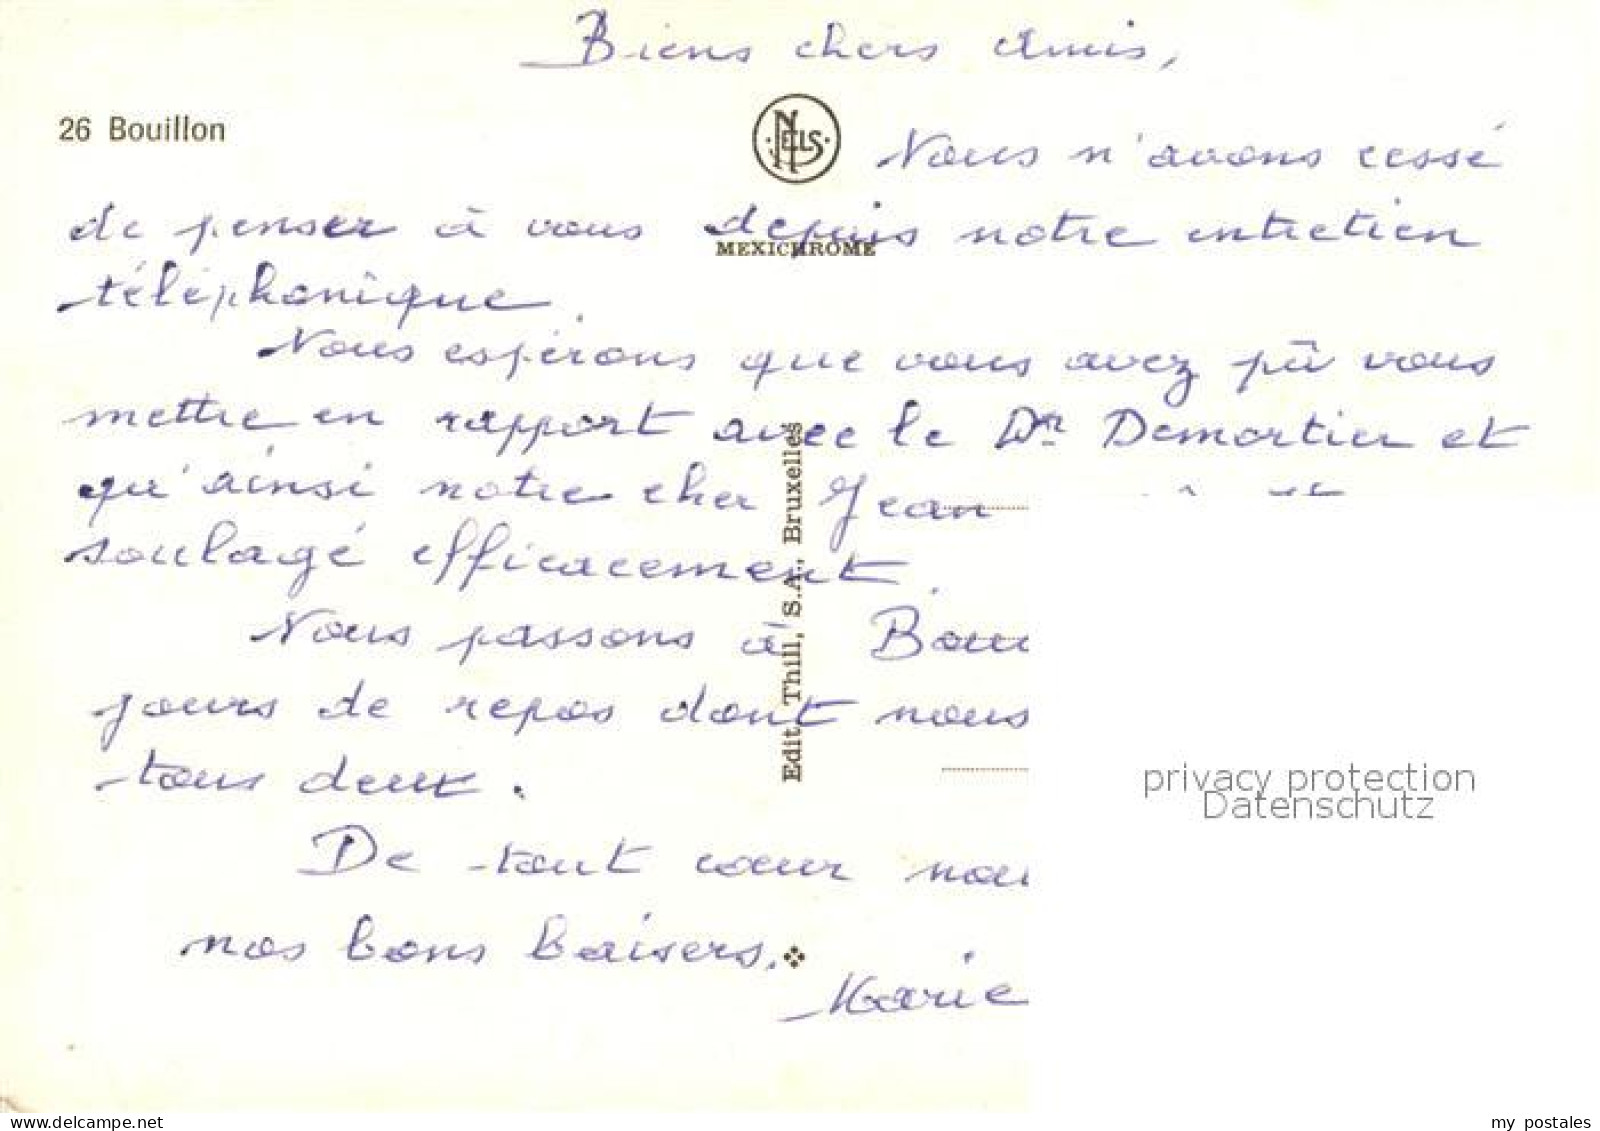 Biens chers Amis,
26 Bouillon
NELS
Nous n'avons cessé
de penser à vous depuis notre entretien
MEXICHROME
téléphonique.
Nous espérons que vous avez pû vous
mettre en rapport avec le Dr Demortier et
qu'ainsi notre cher Jean
soulagé efficacement.
Nous passons à Boui
jours de repos dont nous
tous deux.
De tout cœur nou
nos bons baisers.
Marie
Edit. Thill, S.A., Bruxelles
privacy protection
Datenschutz
delcampe.net
my_postales